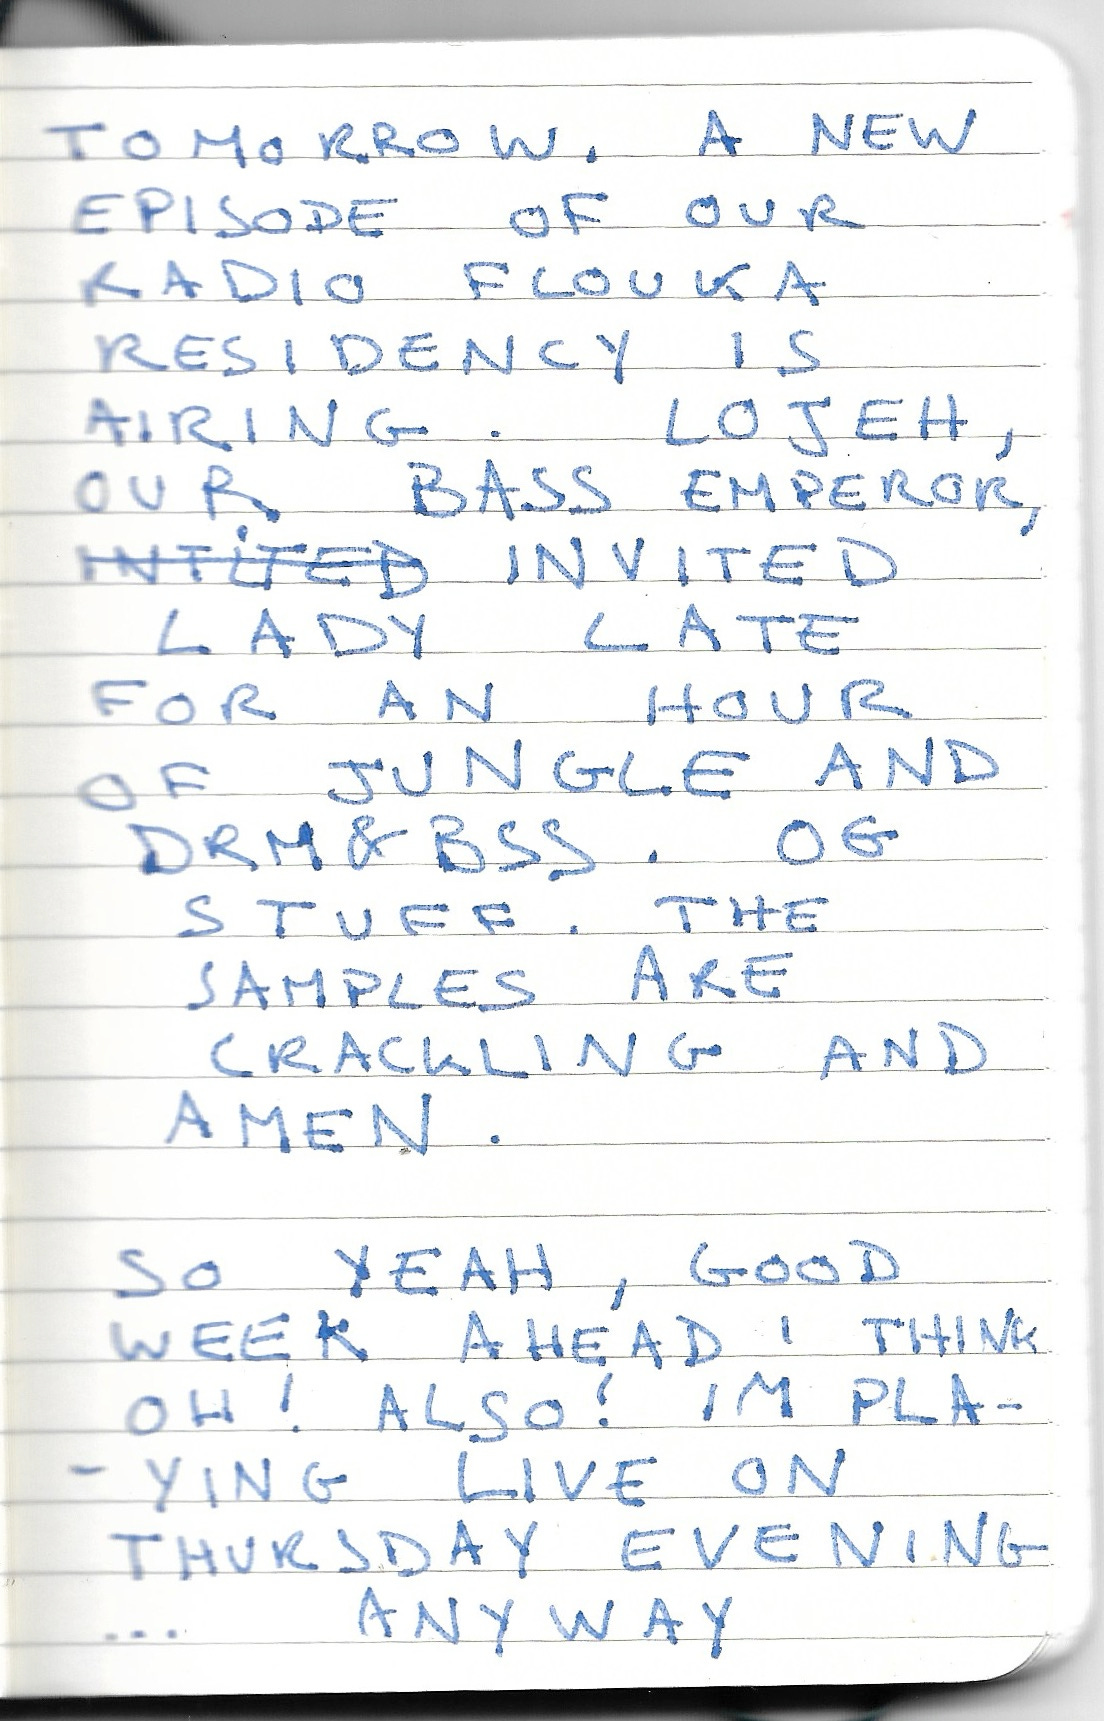 TOMORROW. A NEW
EPISODE OF OUR
RADIO FLOUKA
RESIDENCY IS
AIRING. LOJEH,
OUR BASS EMPEROR,
INTITED INVITED
LADY LATE
FOR AN HOUR
OF JUNGLE AND
DRM&BSS. OG
STUFF. THE
SAMPLES ARE
CRACKLING AND
AMEN.
SO YEAH, GOOD
WEEK AHEAD I THINK
OH! ALSO! IM PLA-
-YING LIVE ON
THURSDAY EVENING
... ANYWAY